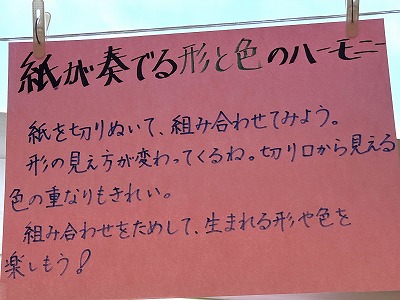 紙が奏でる形と色のハーモニー
紙を切りぬいて、組み合わせてみよう。
形の見え方が変わってくるね。切り口から見える
色の重なりもきれい。
組み合わせをためして、生まれる形や色を
楽しもう!